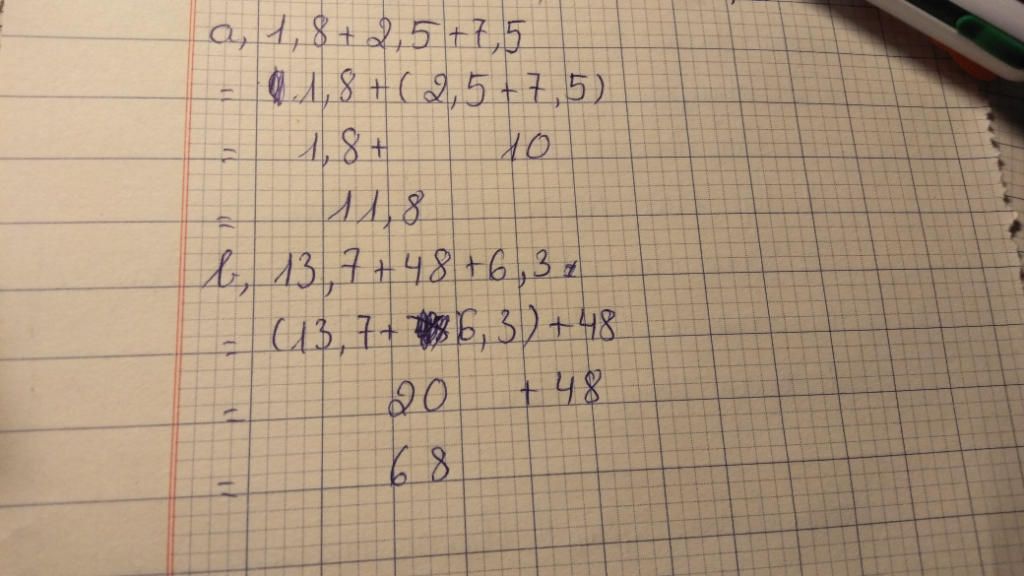 a, 1,8 + 2,5 + 7,5
= 1,8 + (2,5 + 7,5)
= 1,8 + 10
= 11,8
b, 13,7 + 48 + 6,3
= (13,7 + 6,3) + 48
= 20 + 48
= 68